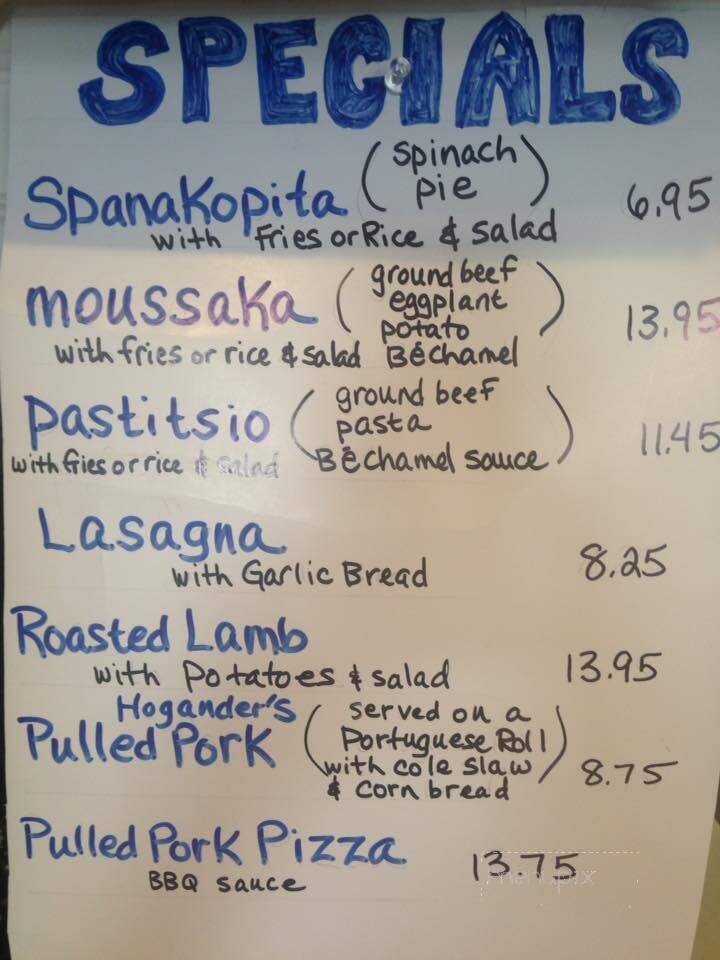 SPECIALS
Spanakopita (spinach pie) 6.95
with Fries or Rice & salad
moussaka (ground beef eggplant potato Béchamel) 13.95
with fries or rice & salad
Pastitsio (ground beef pasta Béchamel sauce) 11.45
with fries or rice & salad
Lasagna
with Garlic Bread 8.25
Roasted Lamb
with Potatoes & salad 13.95
Hogander's
Pulled Pork (served on a Portuguese Roll with cole slaw & corn bread) 8.75
Pulled Pork Pizza 13.75
BBQ sauce
menupix